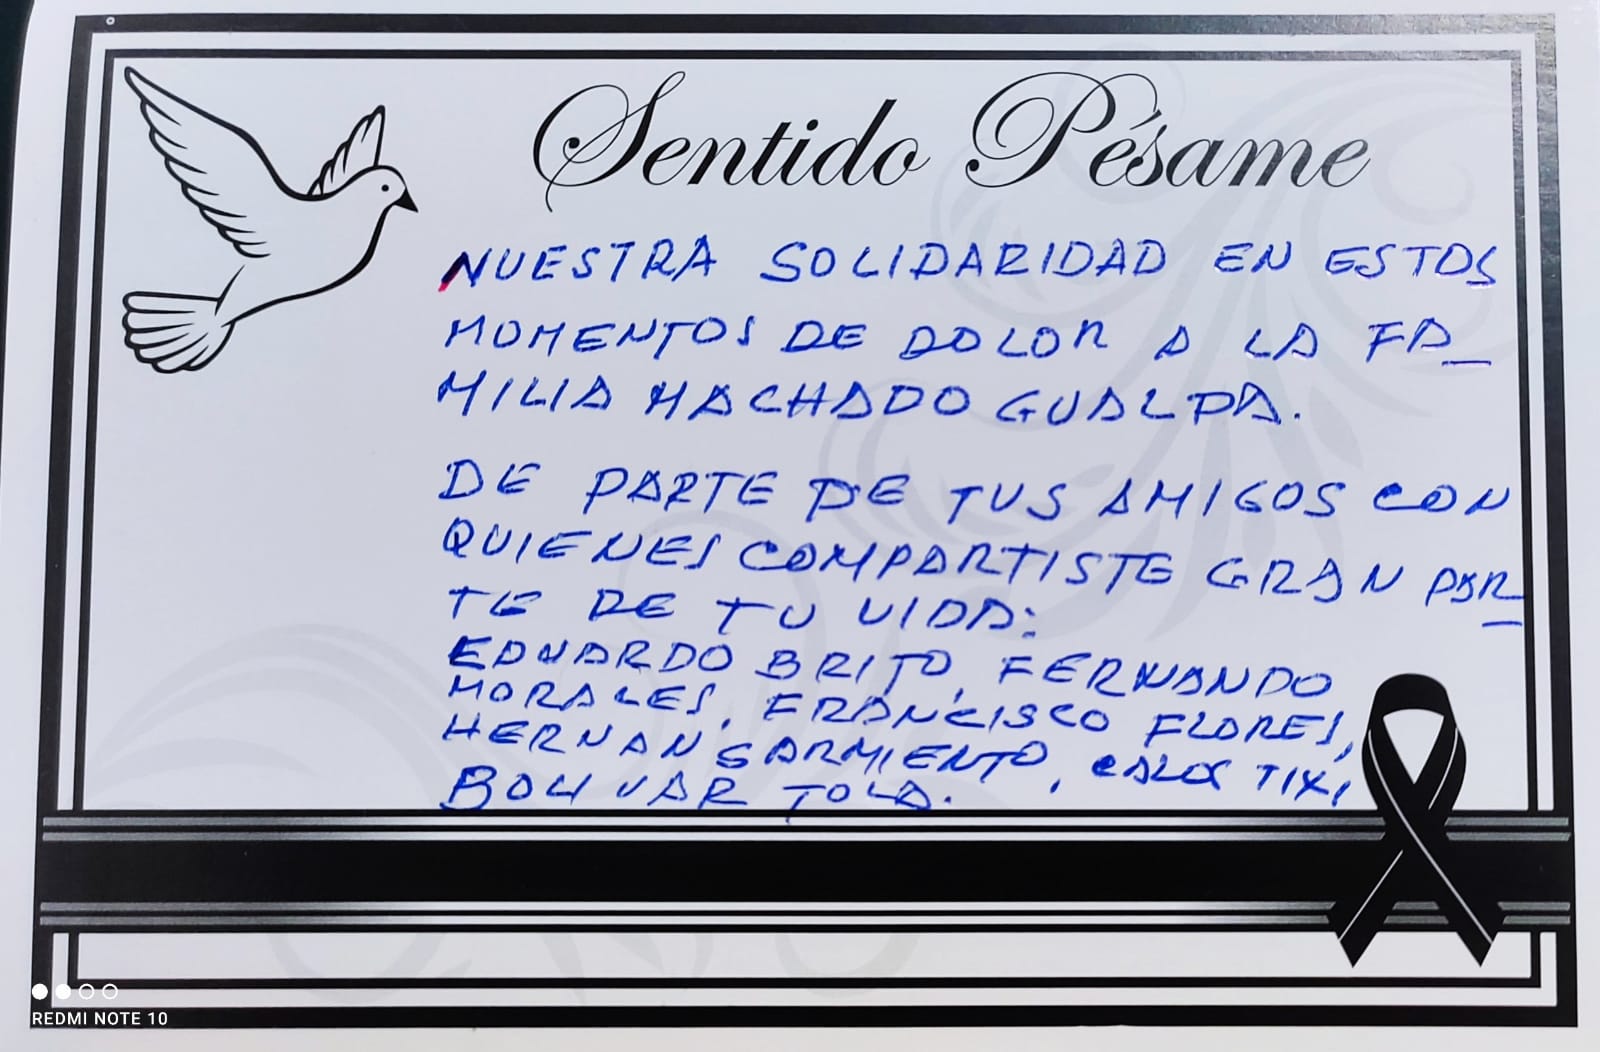 Sentido Pésame
NUESTRA SOLIDARIDAD EN ESTOS
MOMENTOS DE DOLOR A LA FA_
MILIA MACHADO GUALPA.
DE PARTE DE TUS AMIGOS CON
QUIENES COMPARTISTE GRAN PAR_
TE DE TU VIDA:
EDUARDO BRITO, FERNANDO
MORALES, FRANCISCO FLORES,
HERNAN SARMIENTO, TIXI,
BOLIVAR TOLA.
REDMI NOTE 10